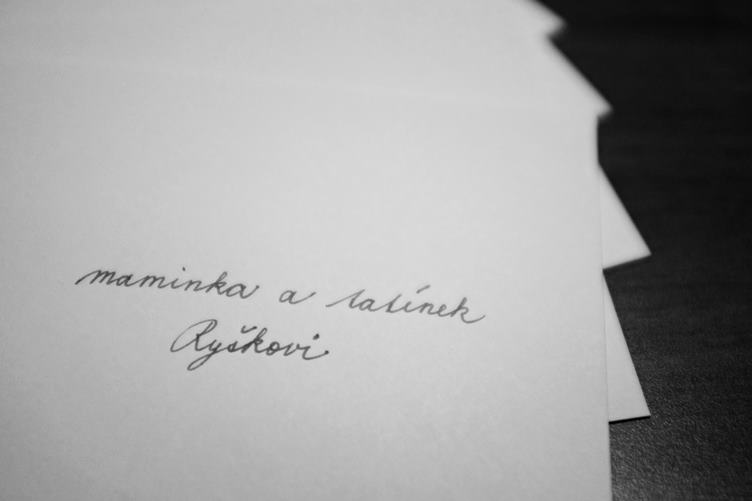 maminka a tatínek
Ryškovi